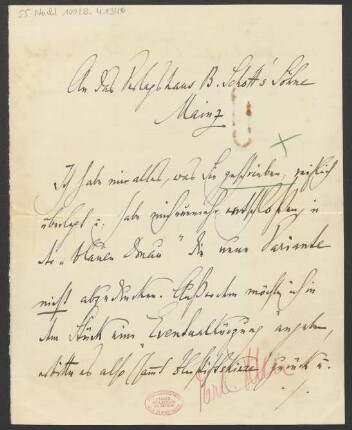 55 Nachl 100/B, 41346
An das Verlagshaus B. Schott's Söhne
Mainz
Ich habe mir alles, was Sie geschrieben, reiflich
überlegt u. habe mich nunmehr entschlossen, in
der "blauen Donau" die neue Variante
nicht abzudrucken. Außerdem möchte ich in
dem Stück eine "Eventualkürzung" angeben,
erbitte es also samt zurück u.